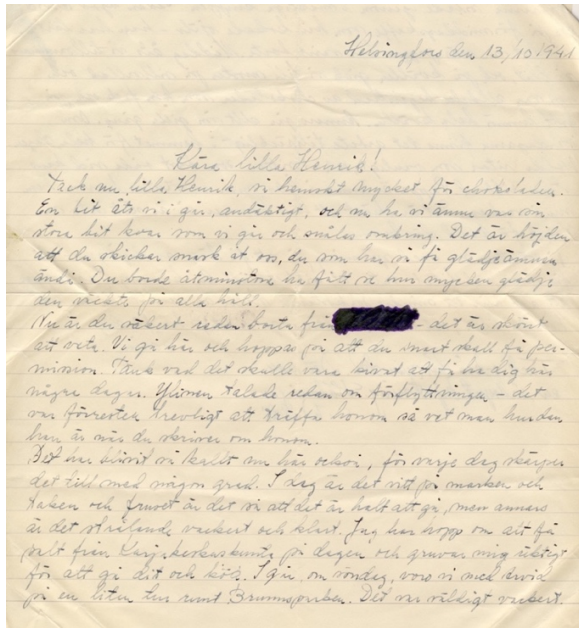 Helsingfors den 13/10 1941
Kära lilla Henrik!
Tack nu lilla Henrik, så hemskt mycket för chokoladen.
En bit åts vi i går, andäktigt, och nu ha vi ännu var sin
stora bit kvar som vi går och småler omkring. Det är höjden
att du skickar snask åt oss, du som har så få glädjeämnen
ändå. Du borde åtminstone ha fått se hur mycken glädje
den väckte på alla håll.
Nu är du säkert redan borta från - det är skönt
att veta. Vi gå här och hoppas på att du snart skall få per-
mission. Tänk vad det skulle vara att få ha dig här
några dagar. talade redan om förflyttningen - det
var förresten trevligt att träffa honom så vet man hurdan
han är när du skriver om honom.
Det har blivit så kallt nu här också, för varje dag skärper
det till med någon grad. I dag är det vitt på marken och
taken och fruset är det så att det är halt att gå, men annars
är det strålande vackert och klart. Jag har hopp om att få
från på dagen och gruvar mig riktigt
för att gå dit och I går, om söndag, voro vi med
på en liten tur runt Brunnsparken. Det var väldigt vackert.